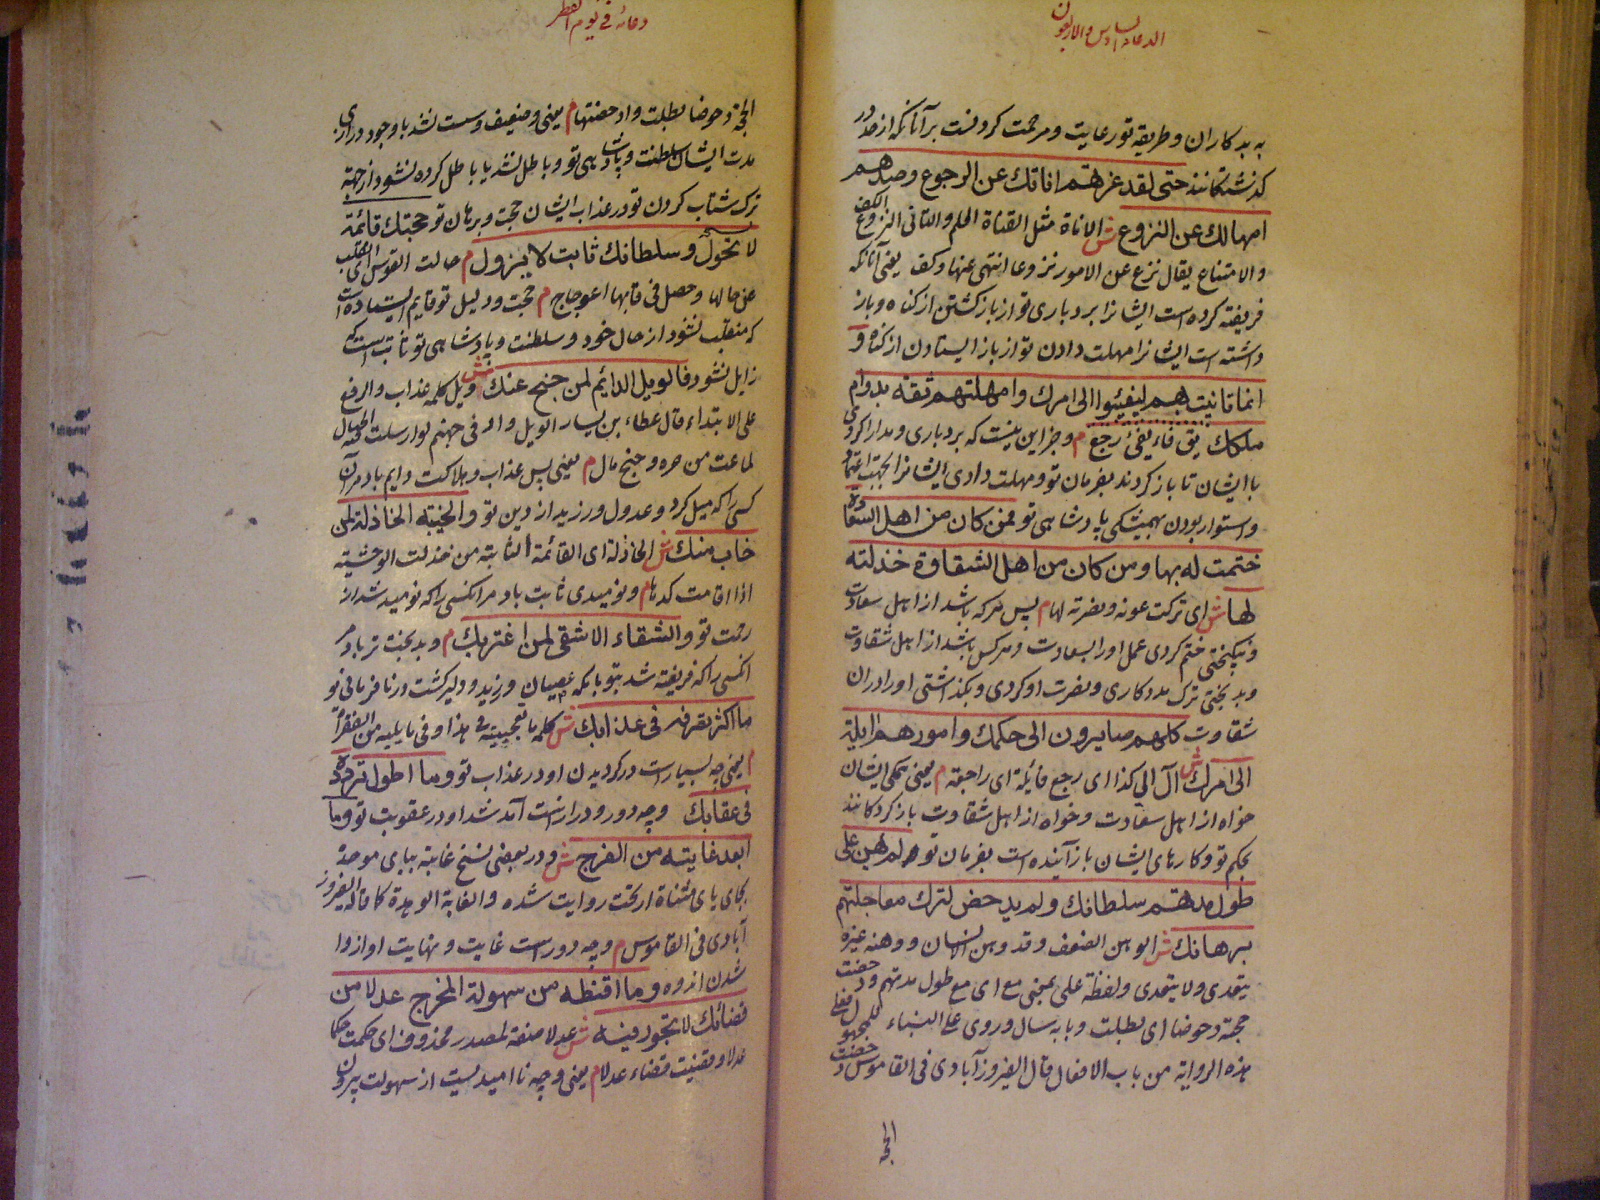 الدعاء السادس والاربعون
به بدکاران و طریقه تو رعایت و مرحمت کردنست بر آنانکه از حد در
کذشتکانند حتی لقد غرتهم اناتك عن الرجوع وصدهم
امهالك عن النزوع ش الاناة مثل القناة الحلم والتانی النزوع الکف
والامتناع یقال نزع عن الامور نزوعا انتهی عنها وکف یعنی آنانکه
فریفته کرده است ایشانرا بردباری تو از بازکشتن از کناه و باز
داشته است ایشانرا مهلت دادن تو از باز ایستادن از کناه و
انما تانیت بهم لیفیئوا الی امرك وامهلتهم ثقة بدوام
ملکك یق فاء یفئ رجع م و جز این نیست که بردباری و مدارا کردی
با ایشان تا باز کردند بفرمان تو و مهلت دادی ایشانرا بجهت اعتماد
و استوار بودن بهمیشکی پادشاهی تو فمن کان من اهل السعادة
ختمت له بها ومن کان من اهل الشقاوة خذلته
لها ش ای ترکت عونه ونصرته لها م پس هرکه باشد از اهل سعادت
و نیکبختی ختم کردی عمل او را بسعادت و هرکس باشد از اهل شقاوت
و بدبختی ترک مددکاری و نصرت او کردی و بکذاشتی او را در آن
شقاوت کلهم صایرون الی حکمك وامورهم ایلة
الی امرك ش آل الی کذا ای رجع فایلة ای راجعة م یعنی همکی ایشان
خواه از اهل سعادت و خواه از اهل شقاوت باز کردکانند
بحکم تو و کارهای ایشان باز آینده است بفرمان تو لم یهن علی
طول مدتهم سلطانك ولم یدحض لترك معاجلتهم
برهانك ش الوهن الضعف وقد وهن الانسان ووهنه غیره
یتعدی ولا یتعدی ولفظة علی بمعنی مع ای مع طول مدتهم ودحضت
حجة دحوضا ای بطلت وبابه سال وروی علی البناء للمجهول فعلی
هذه الروایة من باب الافعال قال الفیروزآبادی فی القاموس دحضت
الحجة
دعائه فی یوم الفطر
الحجة دحوضا بطلت وادحضتها م یعنی و ضعیف و سست نشد با وجود درازی
مدت ایشان سلطنت و پادشاهی تو و باطل نشد یا باطل کرده نشود از جهة
ترک شتاب کردن تو در عذاب ایشان حجت و برهان تو حجتك قائمة
لا تحول وسلطانك ثابت لا یزول م حالت القوس ای انقلب
عن حالها وحصل فی قابها اعوجاج م حجت و دلیل تو قایم ایستاده است
که منقلب نشود از حال خود و سلطنت و پادشاهی تو ثابت است که
زایل نشود فالویل الدائم لمن جنح عنك ش ویل کلمه عذاب والرفع
علی الابتداء قال عطاء بن یسار الویل واد فی جهنم لو ارسلت فیه الجبال
لماعت من حره وجنح مال م یعنی پس عذاب و هلاکت دایم باد مر آن
کسی را که میل کرد و عدول ورزید از دین تو والخیبة الخاذلة لمن
خاب منك ش الخاذلة ای القائمة الثابتة من خذلت الوحشیة
اذا اقامت کدا م و نومیدی ثابت باد مر آنکسی را که نومید شد از
رحمت تو والشقاء الاشقی لمن اغتر بك م و بدبخت تر باد مر
آنکسی را که فریفته شد بتو بآنکه عصیان ورزید و دلیر کشت در نافرمانی تو
ما اکثر تصرفه فی عذابك ش کلمه ما تعجبیة فی هذا وفی ما یلیه من الفقرا
م یعنی چه بسیار است در کردیدن او در عذاب تو وما اطول تردده
فی عقابك و چه دور و دراز است آمد شد او در عقوبت تو وما
ابعد غایته من الفرج ش و در بعضی نسخ غابته ببای موحدة
بجای یای مثناة از تحت روایت شده والغابة الوهدة کما قاله الفیروز
آبادی فی القاموس م و چه دور است غایت و نهایت او از وا
شدن اندوه وما اقنطه من سهولة المخرج عدلا من
قضائك لا تجور فیه ش عدلا صفة لمصدر محذوف ای حکمت حکما
عدلا وقضیت قضاء عدلا م یعنی و چه نا امید است از سهولت بیرون